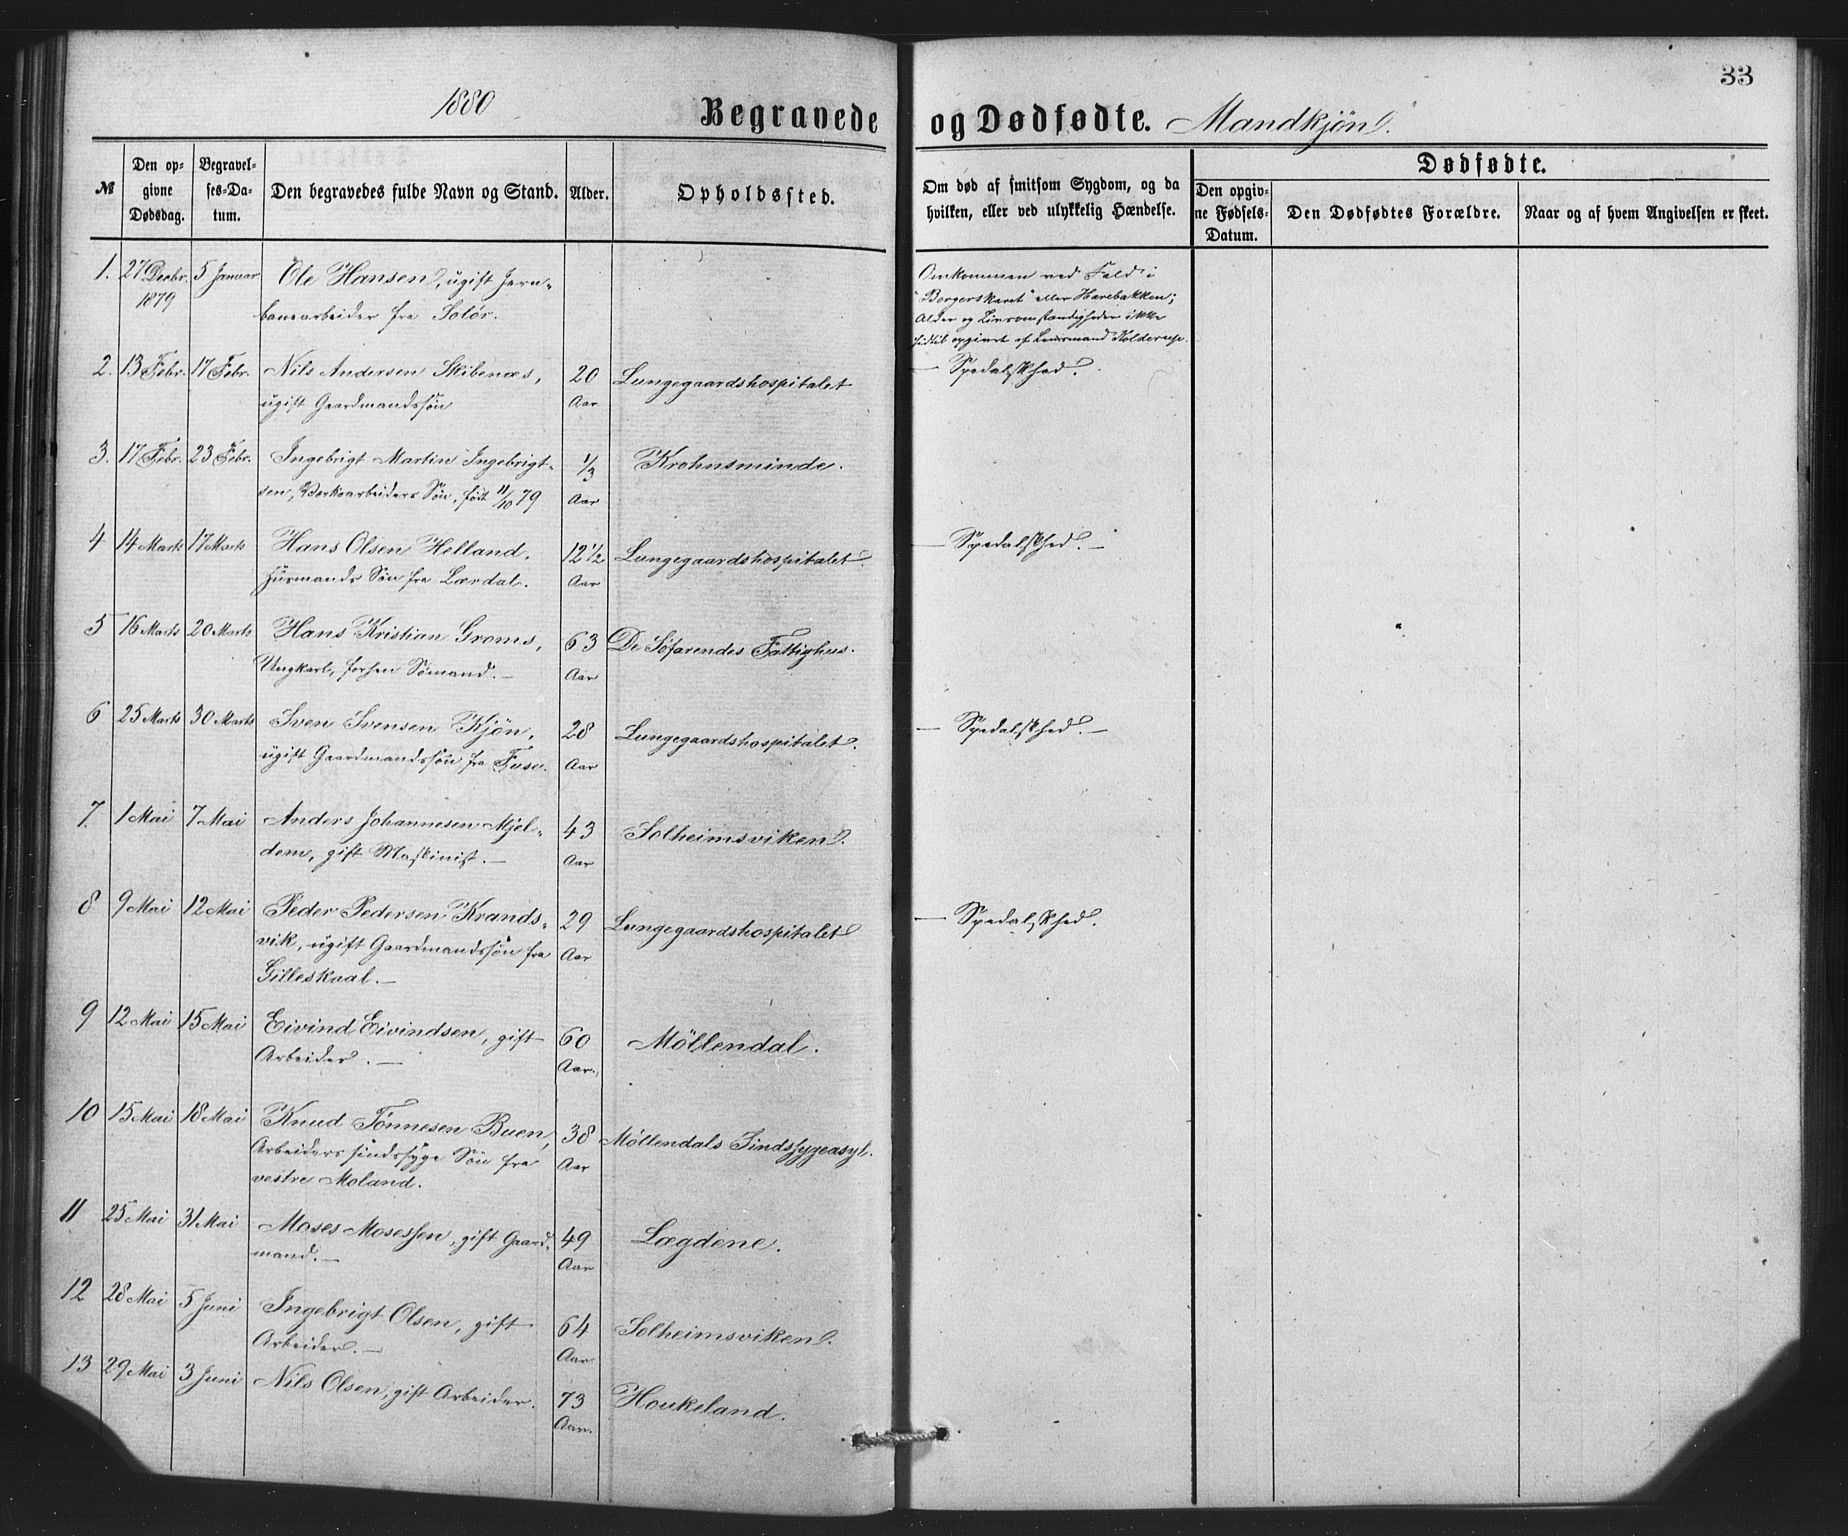 33
1880 Begravede og Dødfødte. Mandkjøn.
№
Den opgivne Dødsdag.
Begravelses-Datum.
Den begravedes fulde Navn og Stand.
Alder.
Opholdssted.
Om død af smitsom Sygdom, og da hvilken, eller ved ulykkelig Hændelse.
Dødfødte.
Den opgivne Fødsels-Datum.
Den Dødfødtes Forældre.
Naar og af hvem Angivelsen er skeet.
1. 27 Decbr. 5 Januar Ole Hansen, ugift Jern- Omkommen ved Fald i
1879 banearbeider fra Solör. "Borgerskaret" eller Harebakken;
Alder og Livsomstændigheder ikke
hidtil opgivet af Lensmand Kolderup.
2. 13 Febr. 17 Febr. Nils Andersen Skibenæs, 20 Lungegaardshospitalet — Spedalskhed.
ugift Gaardmandssøn Aar
3. 17 Febr. 23 Febr. Ingebrigt Martin Ingebrigt- 1/3 Krohnsminde.
sen, Verksarbeiders Søn, født 11/10 79 Aar
4 14 Marts 17 Marts Hans Olsen Helland, 12 1/2 Lungegaardshospitalet. — Spedalskhed. —
Husmands Søn fra Lærdal. Aar
5 16 Marts 20 Marts Hans Kristian Groms, 63 De Söfarendes Fattighus.
Ungkarl, forhen Sömand. — Aar
6 25 Marts 30 Marts Sven Svensen Kjön, 28 Lungegaardshospitalet. — Spedalskhed. —
ugift Gaardmandssøn fra Fuse. Aar
7. 1 Mai 7 Mai Anders Johannesen Mjel- 43 Solheimsviken.
dem, gift Maskinist. — Aar
8 9 Mai 12 Mai Peder Pedersen Krands- 29 Lungegaardshospitalet — Spedalskhed.
vik, ugift Gaardmandssøn fra Aar
Gilleskaal. —
9 12 Mai 15 Mai Eivind Eivindsen, gift 60 Möllendal.
Arbeider. — Aar.
10 15 Mai 18 Mai Knud Tönnesen Buen, 38 Möllendals Sindssygeasyl.
Arbeiders sindssyge Søn fra Aar
vestre Moland.
11 25 Mai 31 Mai Moses Mosessen, gift Gaard- 49 Lægdene.
mand. — Aar
12 28 Mai 5 Juni Ingebrigt Olsen, gift 64 Solheimsviken.
Arbeider. — Aar
13 29 Mai 3 Juni Nils Olsen, gift Arbeider. 73 Houkeland.
Aar.